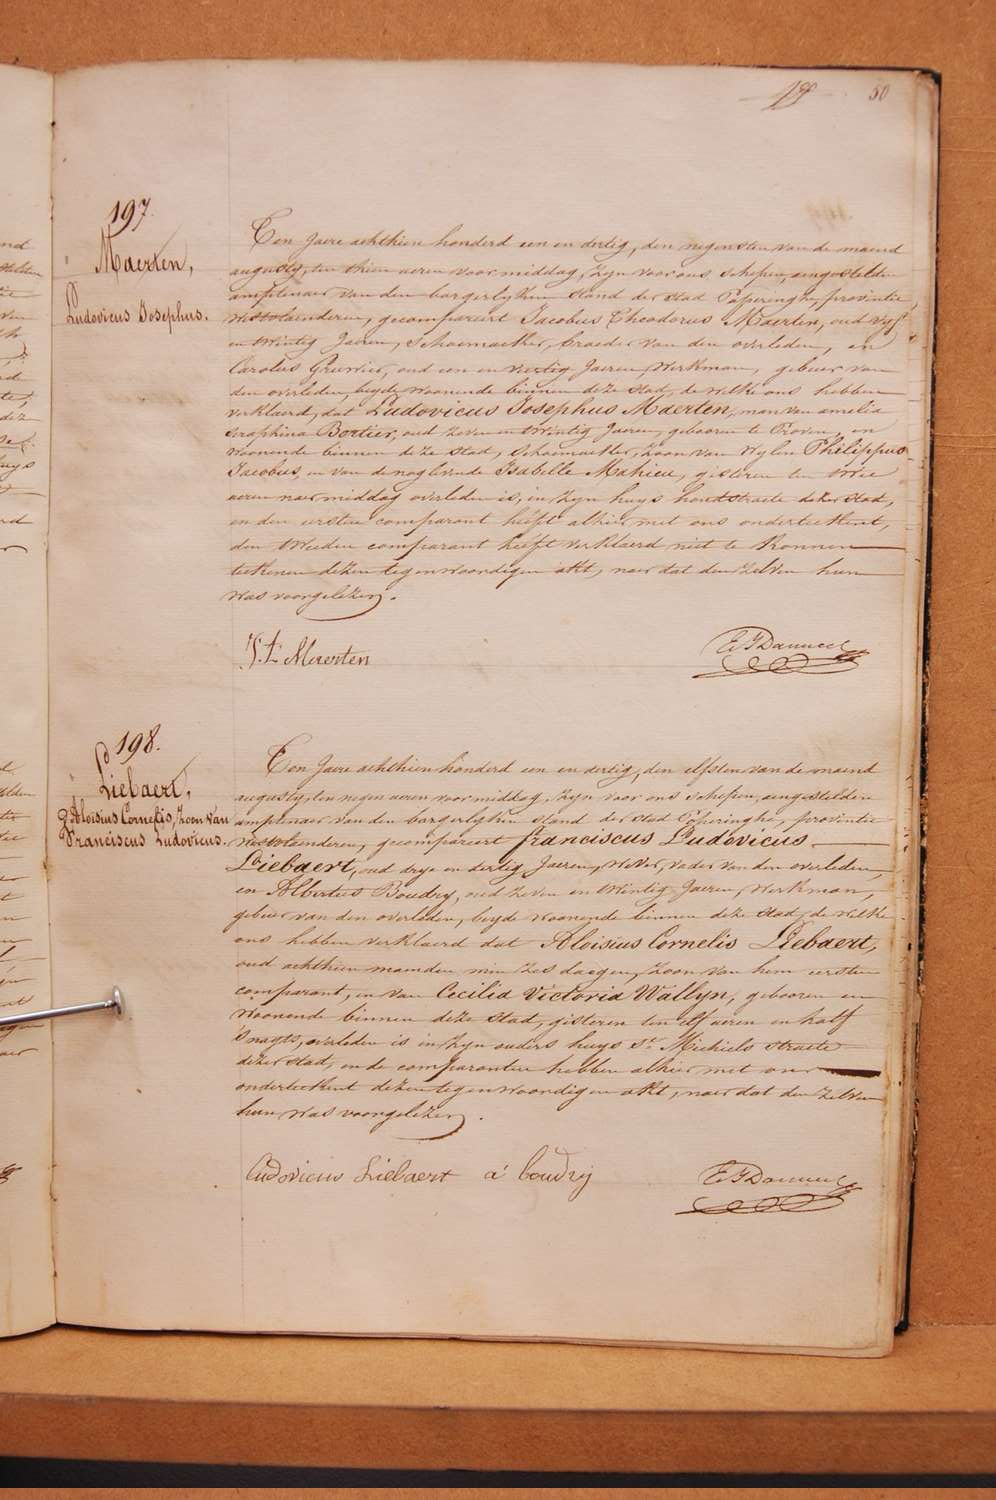 50
197.
Maerten,
Ludovicus Josephus.
Ten Jaere achthien honderd een en dertig, den negensten van de maend
augusty, ten thien ueren voor middag, zyn voor ons schepen, aengestelden
amptenaer van den borgerlyken stand der stad Poperinghe, provintie
Westvlaenderen, gecompareert Jacobus Theodorus Maerten, oud vyf
en twintig Jaeren, schoemaeker, broeder van den overleden, en
Carolus Gruwier, oud een en veertig Jaeren, Werkman, gebuer van
den overleden, beyde woonende binnen deze stad, de welke ons hebben
verklaerd, dat Ludovicus Josephus Maerten, man van amelia
seraphina Bortier, oud zeven en twintig Jaeren, gebooren te Proven, en
woonende binnen deze stad, schoemaeker, zoon van wylen Philippus
Jacobus, en van de nog levende Isabelle Mahieu, gisteren ten twee
ueren naer middag overleden is, in zyn huys hondstraete dezer stad,
en den eersten comparant heeft alhier met ons onderteekent,
den tweeden comparant heeft verklaerd niet te konnen
teekenen dezen tegenwoordigen akt, naer dat den zelven hun
was voorgelezen.
J. t. Maerten
198.
Liebaert,
Aloisius Cornelis, Zoon van
Franciscus Ludovicus.
Ten Jaere achthien honderd een en dertig, den elfsten van de maend
augusty, ten negen ueren voor middag, zyn voor ons schepen, aengestelden
amptenaer van den borgerlyken stand der stad Poperinghe, provintie
Westvlaenderen, gecompareert franciscus Ludovicus
Liebaert, oud drye en dertig Jaeren, Wever, vader van den overleden,
en Albertus Boudry, oud zeven en twintig Jaeren, Werkman,
gebuer van den overleden, beyde woonende binnen deze stad, de welke
ons hebben verklaerd dat Aloisius Cornelis Liebaert,
oud achthien maenden min zes daegen, zoon van hem eersten
comparant, en van Cecilia Victoria Wallyn, gebooren en
woonende binnen deze stad, gisteren ten elf ueren en half
's nagts, overleden is in zyn ouders huys St. Michiels straete
dezer stad, en de comparanten hebben alhier met ons
onderteekent dezen tegenwoordigen akt, naer dat den zelven
hun was voorgelezen.
Ludovicus Liebaert a boudry